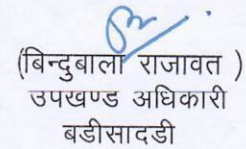 (बिन्दुबाला राजावत )
उपखण्ड अधिकारी
बडीसादडी